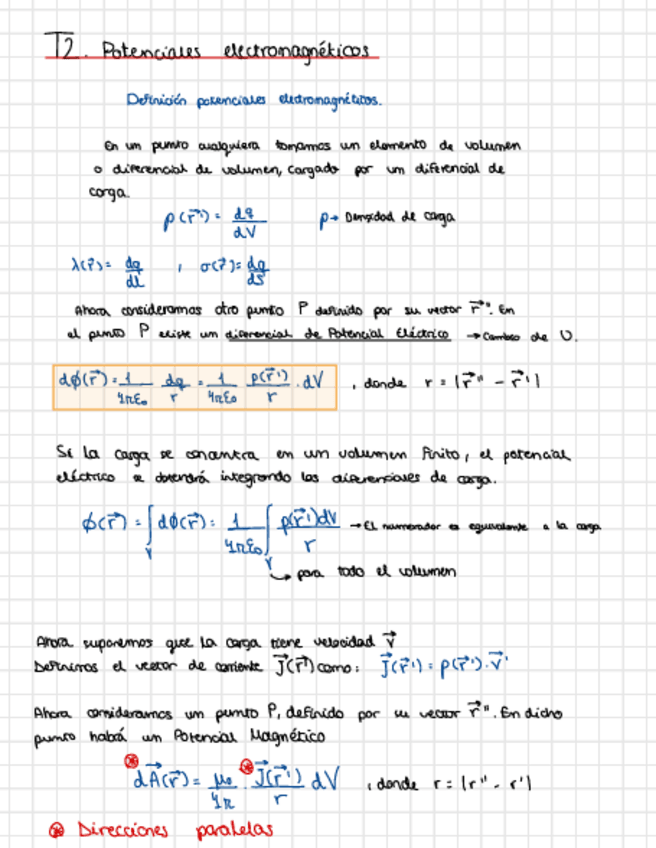 T2. Potenciales electromagnéticos
Definición potenciales electromagnéticos.
En un punto cualquiera tomamos un elemento de volumen
o diferencial de volumen, cargado por un diferencial de
carga.
ρ(r⃗') = dq/dV    ρ→ Densidad de carga
λ(r⃗) = dq/dl , σ(r⃗) = dq/ds
Ahora consideramos otro punto P definido por su vector r⃗''. En
el punto P existe un diferencial de Potencial Eléctrico → Cambio de U.
dϕ(r⃗) = 1/4πε₀ dq/r = 1/4πε₀ ρ(r⃗')/r · dV , donde r = |r⃗'' - r⃗'|
Si la carga se concentra en un volumen finito, el potencial
eléctrico se obtendrá integrando los diferenciales de carga.
ϕ(r⃗) = ∫_V dϕ(r⃗) = 1/4πε₀ ∫_V ρ(r⃗')dV/r → El numerador es equivalente a la carga
↳ para todo el volumen
Ahora suponemos que la carga tiene velocidad v⃗
Definimos el vector de corriente J⃗(r⃗') como: J⃗(r⃗') = ρ(r⃗')·v⃗'
Ahora consideramos un punto P, definido por su vector r⃗''. En dicho
punto habrá un Potencial Magnético
⊛ dA⃗(r⃗) = μ₀/4π · ⊛ J⃗(r⃗')/r dV , donde r = |r'' - r'|
⊛ Direcciones paralelas